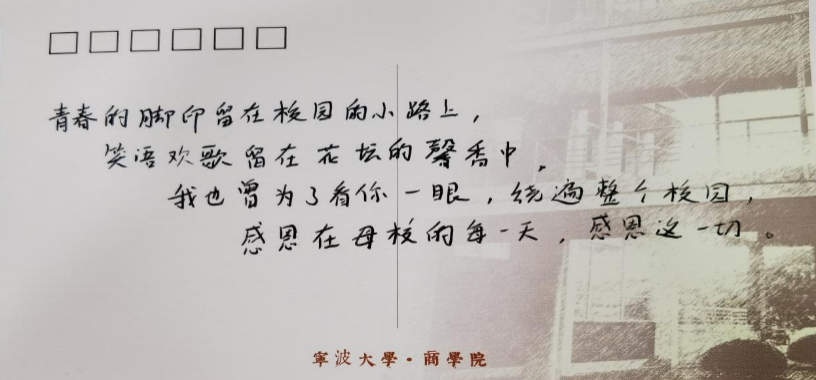 青春的脚印留在校园的小路上，
笑语欢歌留在花坛的馨香中，
我也曾为了看你一眼，绕遍整个校园，
感恩在母校的每一天，感恩这一切。
寧波大學·商學院